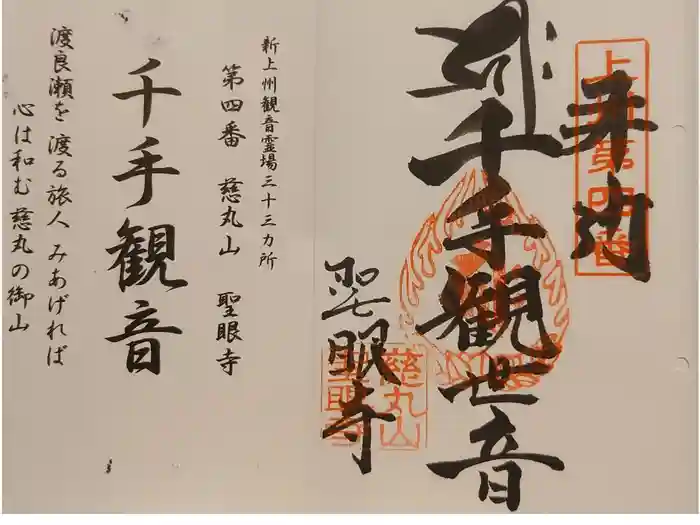 奉拝
上州第四番
千手観世音
聖眼寺
慈丸山
聖眼寺
新上州観音霊場三十三カ所
第四番　慈丸山　聖眼寺
千手観音
渡良瀬を　渡る旅人　みあげれば
心は和む　慈丸の御山